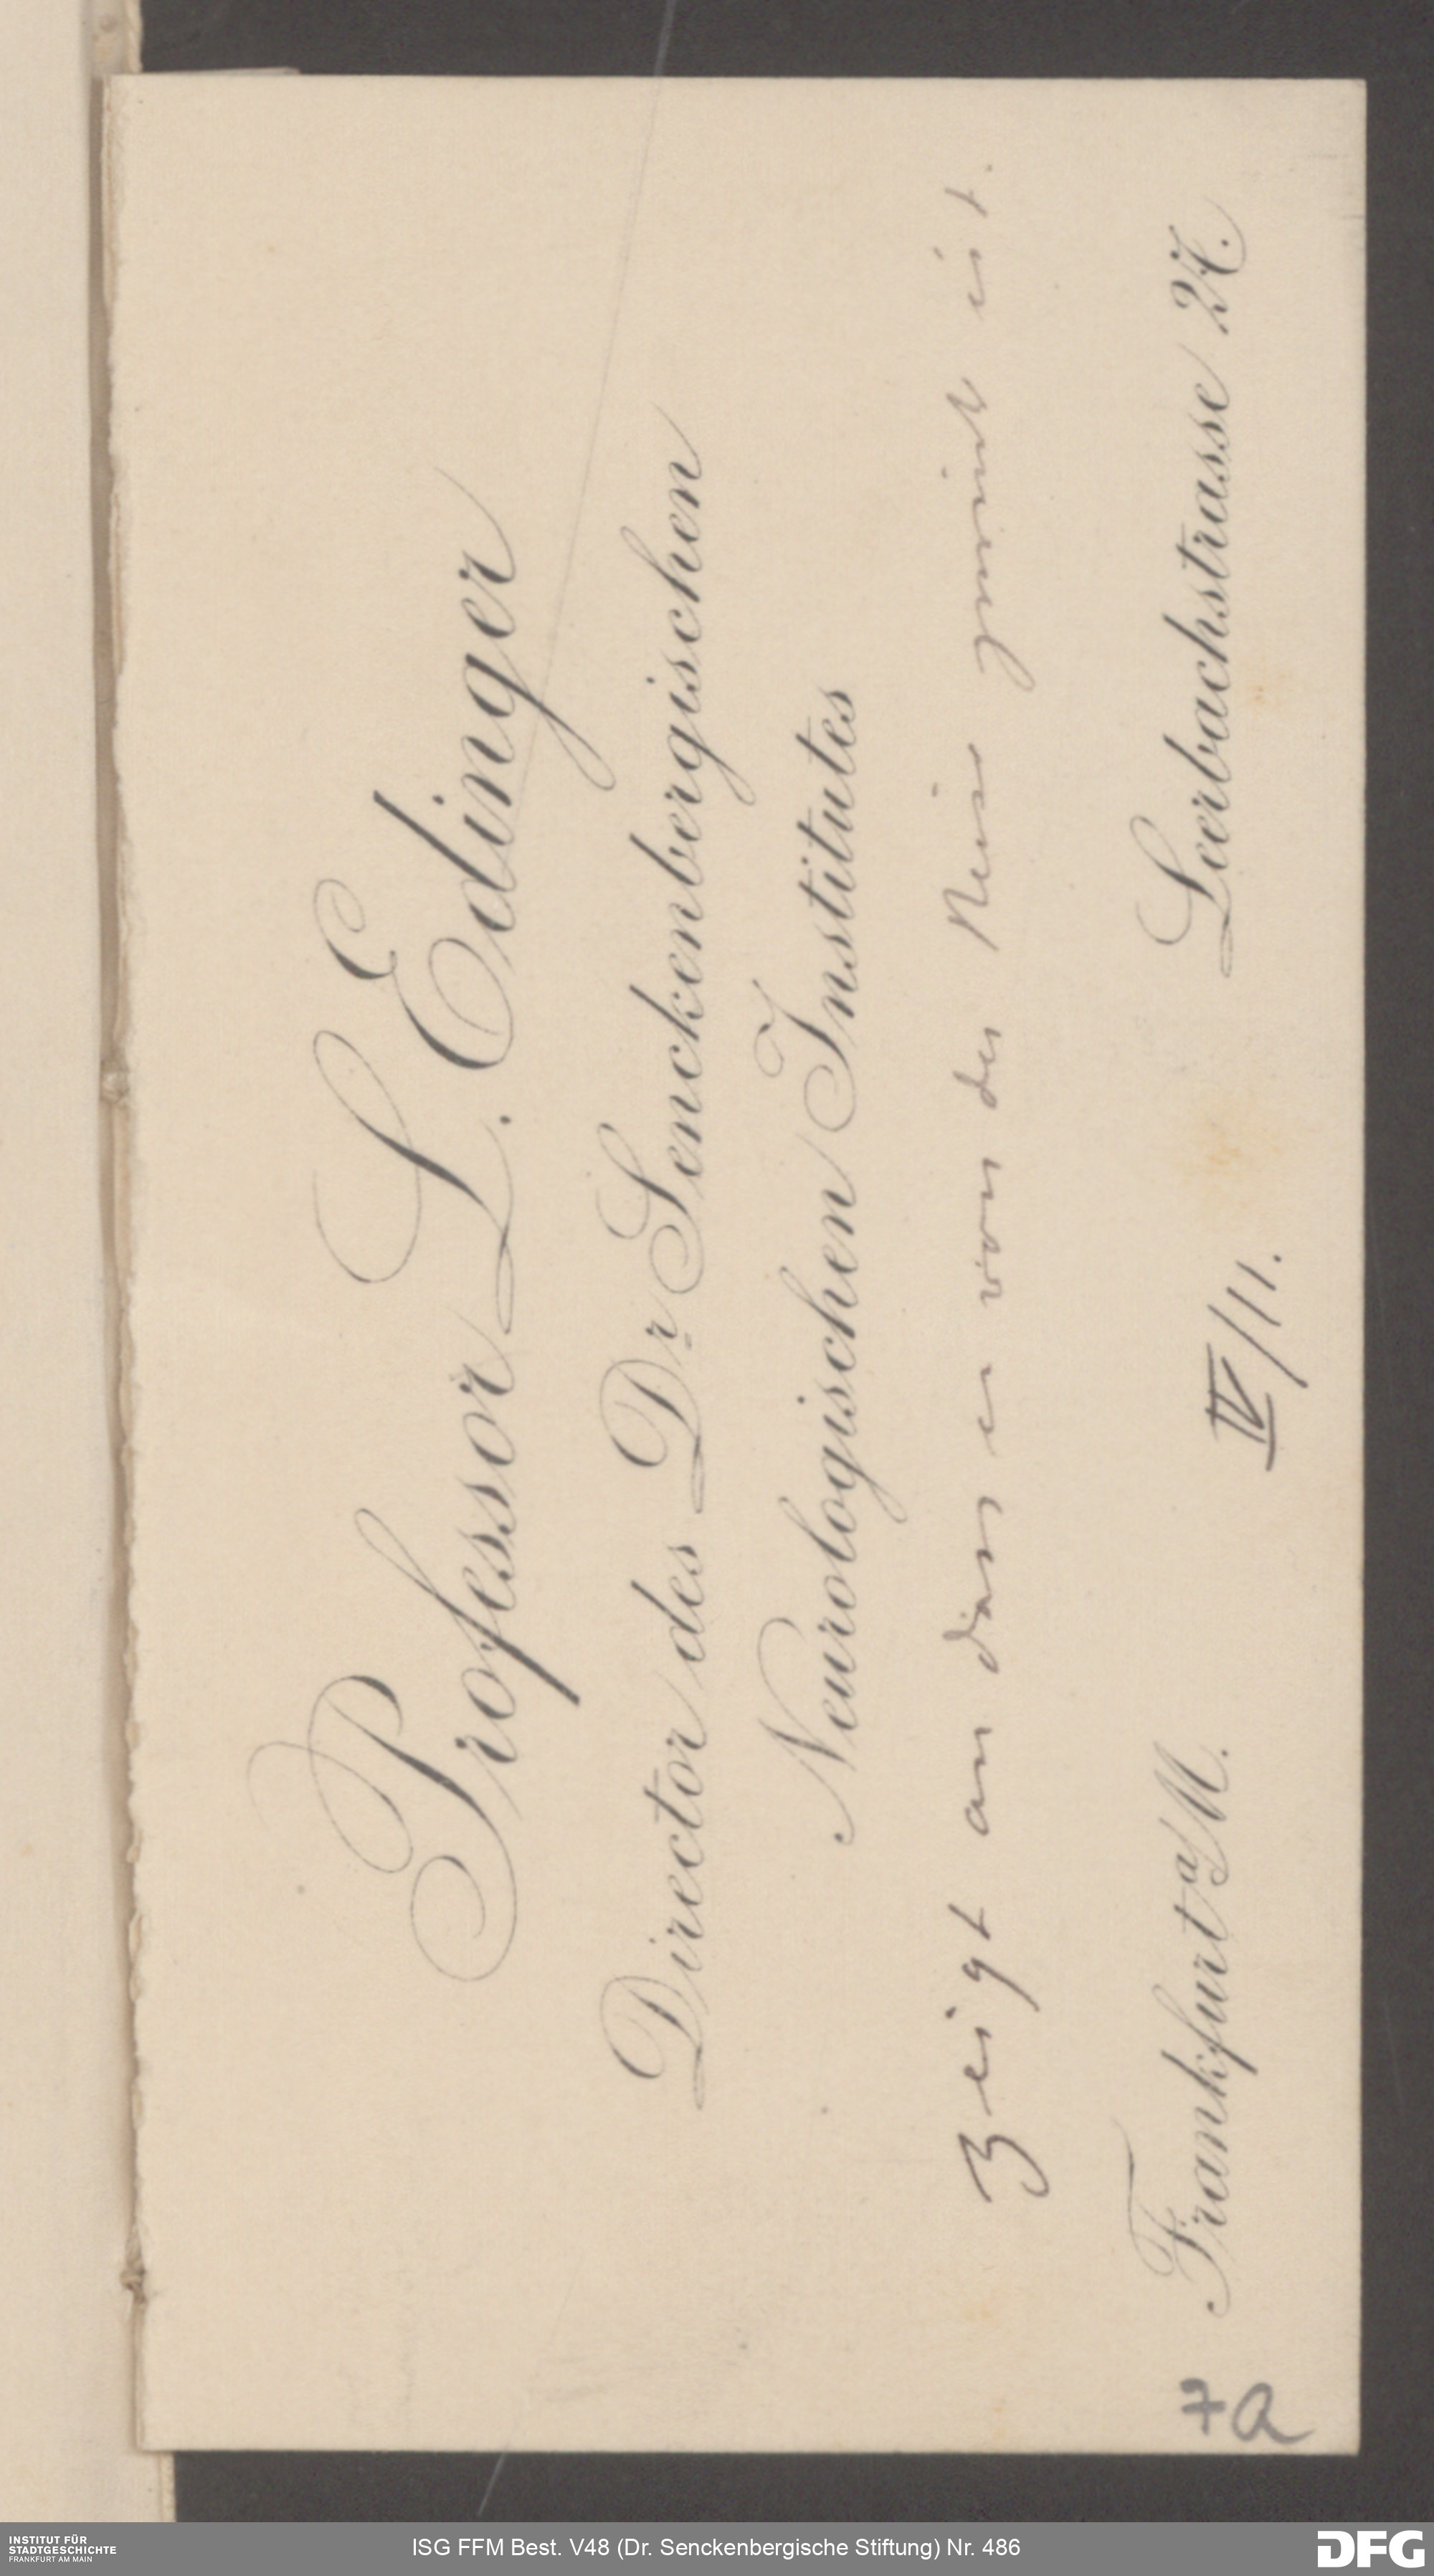 Professor L. Edinger
Director des Dr Senckenbergischen
Neurologischen Instituts
zeigt an dass er von der Reise zurück ist.
Frankfurt a/M.
Leerbachstrasse 27.
IV/11.
7a
INSTITUT FÜR
STADTGESCHICHTE
FRANKFURT AM MAIN
ISG FFM Best. V48 (Dr. Senckenbergische Stiftung) Nr. 486
DFG